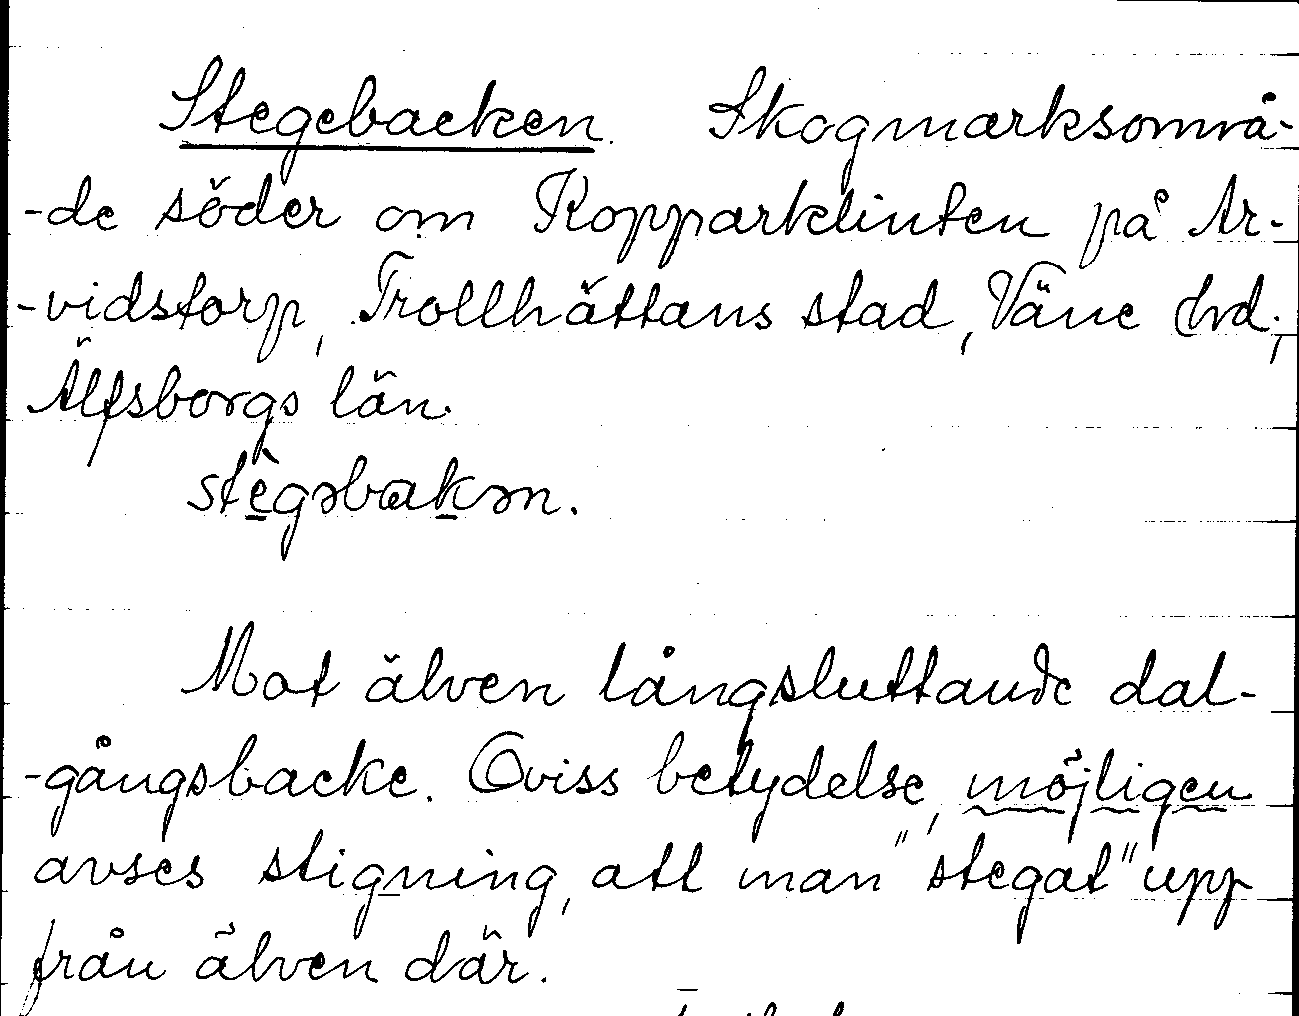 Stegebacken. Skogmarksområ-
-de söder om Kopparklinten på Ar-
-vidstorp, Trollhättans stad, Väne hd.,
Älfsborgs län.
stègəbakən.
Mot älven långsluttande dal-
-gångsbacke. Oviss betydelse, möjligen
avses stigning, att man "stegat" upp
från älven där.